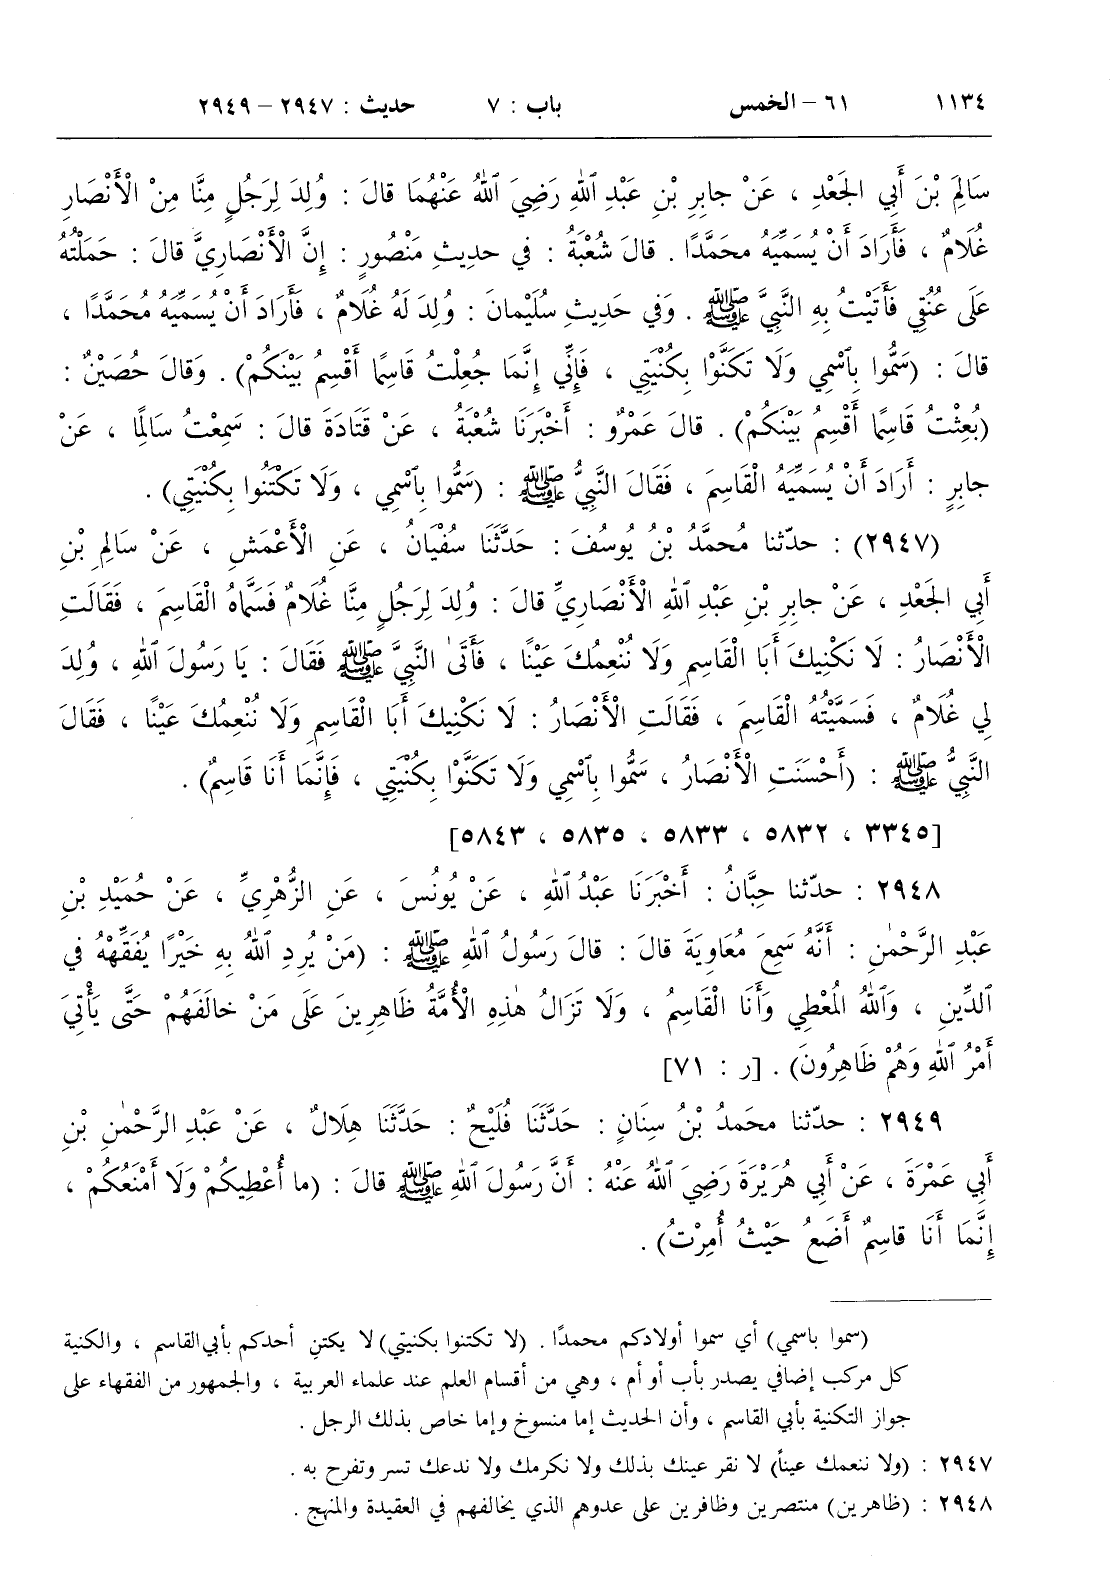 ١١٣٤ ٦١ - الخمس باب : ٧ حديث : ٢٩٤٧ - ٢٩٤٩
سَالِمَ بْنَ أَبِي الجَعْدِ ، عَنْ جابِرِ بْنِ عَبْدِ ٱللهِ رَضِيَ ٱللهُ عَنْهُمَا قالَ : وُلِدَ لِرَجُلٍ مِنَّا مِنْ الْأَنْصَارِ
غُلَامٌ ، فَأَرَادَ أَنْ يُسَمِّيَهُ محَمَّدًا . قالَ شُعْبَةُ : في حدِيثِ مَنْصُورٍ : إِنَّ الْأَنْصَارِيَّ قالَ : حَمَلْتُهُ
عَلَى عُنُقِي فَأَتَيْتُ بِهِ النَّبِيَّ ﷺ . وَفي حَدِيثِ سُلَيْمانَ : وُلِدَ لَهُ غُلَامٌ ، فَأَرَادَ أَنْ يُسَمِّيَهُ مُحَمَّدًا ،
قالَ : (سَمُّوا بِٱسْمِي وَلَا تَكَنَّوْا بِكُنْيَتِي ، فَإِنِّي إِنَّمَا جُعِلْتُ قَاسِمًا أَقْسِمُ بَيْنَكُمْ) . وَقالَ حُصَيْنٌ :
(بُعِثْتُ قَاسِمًا أَقْسِمُ بَيْنَكُمْ) . قالَ عَمْرٌو : أَخْبَرَنَا شُعْبَةُ ، عَنْ قَتَادَةَ قالَ : سَمِعْتُ سَالِمًا ، عَنْ
جابِرٍ : أَرَادَ أَنْ يُسَمِّيَهُ الْقَاسِمَ ، فَقَالَ النَّبِيُّ ﷺ : (سَمُّوا بِٱسْمِي ، وَلَا تَكْتَنُوا بِكُنْيَتِي) .
(٢٩٤٧) : حدّثنا مُحمَّدُ بْنُ يُوسُفَ : حَدَّثَنَا سُفْيَانُ ، عَنِ الْأَعْمَشِ ، عَنْ سَالِمِ بْنِ
أَبِي الجَعْدِ ، عَنْ جابِرِ بْنِ عَبْدِ ٱللهِ الْأَنْصَارِيِّ قالَ : وُلِدَ لِرَجُلٍ مِنَّا غُلَامٌ فَسَمَّاهُ الْقَاسِمَ ، فَقَالَتِ
الْأَنْصَارُ : لَا نَكْنِيكَ أَبَا الْقَاسِمِ وَلَا نُنْعِمُكَ عَيْنًا ، فَأَتَى النَّبِيَّ ﷺ فَقَالَ : يَا رَسُولَ ٱللهِ ، وُلِدَ
لِي غُلَامٌ ، فَسَمَّيْتُهُ الْقَاسِمَ ، فَقَالَتِ الْأَنْصَارُ : لَا نَكْنِيكَ أَبَا الْقَاسِمِ وَلَا نُنْعِمُكَ عَيْنًا ، فَقَالَ
النَّبِيُّ ﷺ : (أَحْسَنَتِ الْأَنْصَارُ ، سَمُّوا بِٱسْمِي وَلَا تَكَنَّوْا بِكُنْيَتِي ، فَإِنَّمَا أَنَا قَاسِمٌ) .
[٣٣٤٥ ، ٥٨٣٢ ، ٥٨٣٣ ، ٥٨٣٥ ، ٥٨٤٣]
٢٩٤٨ : حدّثنا حِبَّانُ : أَخْبَرَنَا عَبْدُ ٱللهِ ، عَنْ يُونُسَ ، عَنِ الزُّهْرِيِّ ، عَنْ حُمَيْدِ بْنِ
عَبْدِ الرَّحْمٰنِ : أَنَّهُ سَمِعَ مُعَاوِيَةَ قالَ : قالَ رَسُولُ ٱللهِ ﷺ : (مَنْ يُرِدِ ٱللهُ بِهِ خَيْرًا يُفَقِّهْهُ في
ٱلدِّينِ ، وَٱللهُ المُعْطِي وَأَنَا الْقَاسِمُ ، وَلَا تَزَالُ هٰذِهِ الْأُمَّةُ ظَاهِرِينَ عَلَى مَنْ خالَفَهُمْ حَتَّى يَأْتِيَ
أَمْرُ ٱللهِ وَهُمْ ظَاهِرُونَ) . [ر : ٧١]
٢٩٤٩ : حدّثنا محَمدُ بْنُ سِنَانٍ : حَدَّثَنَا فُلَيْحٌ : حَدَّثَنَا هِلَالٌ ، عَنْ عَبْدِ الرَّحْمٰنِ بْنِ
أَبِي عَمْرَةَ ، عَنْ أَبِي هُرَيْرَةَ رَضِيَ ٱللهُ عَنْهُ : أَنَّ رَسُولَ ٱللهِ ﷺ قالَ : (ما أُعْطِيكُمْ وَلَا أَمْنَعُكُمْ ،
إِنَّمَا أَنَا قاسِمٌ أَضَعُ حَيْثُ أُمِرْتُ) .
(سموا باسمي) أي سموا أولادكم محمدًا . (لا تكتنوا بكنيتي) لا يكتنِ أحدكم بأبي القاسم ، والكنية
كل مركب إضافي يصدر بأب أو أم ، وهي من أقسام العلم عند علماء العربية ، والجمهور من الفقهاء على
جواز التكنية بأبي القاسم ، وأن الحديث إما منسوخ وإما خاص بذلك الرجل .
٢٩٤٧ : (ولا ننعمك عيناً) لا نقر عينك بذلك ولا نكرمك ولا ندعك تسر وتفرح به .
٢٩٤٨ : (ظاهرين) منتصرين وظافرين على عدوهم الذي يخالفهم في العقيدة والمنهج .